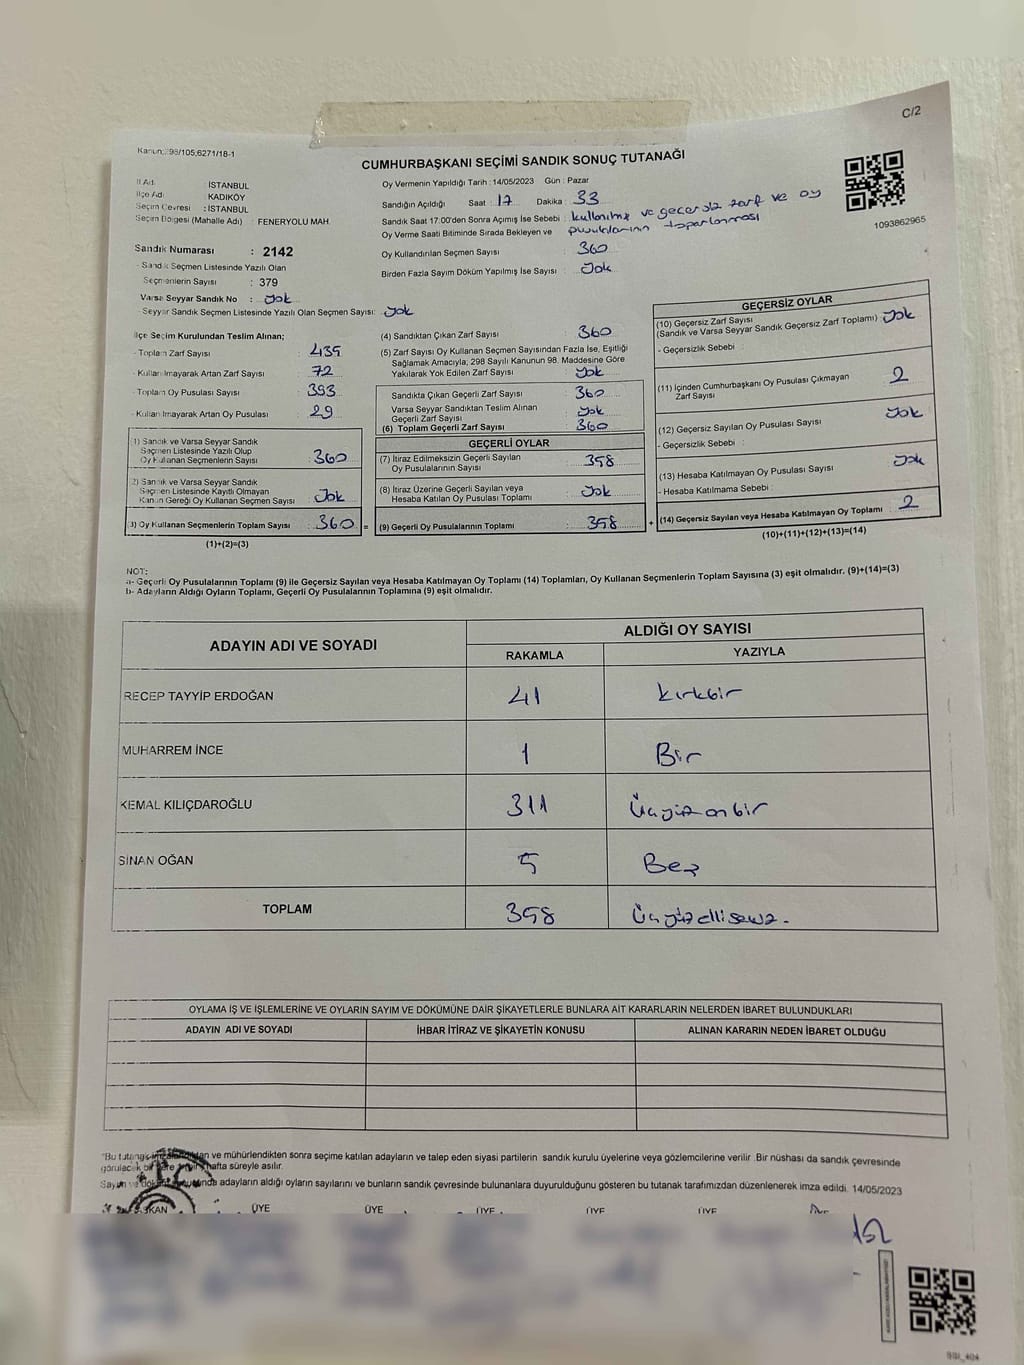 C/2
Kanun: 298/105,6271/18-1
CUMHURBAŞKANI SEÇİMİ SANDIK SONUÇ TUTANAĞI
1093862965
İl Adı : İSTANBUL
İlçe Adı : KADIKÖY
Seçim Çevresi : İSTANBUL
Seçim Bölgesi (Mahalle Adı) : FENERYOLU MAH.
Sandık Numarası : 2142
- Sandık Seçmen Listesinde Yazılı Olan
Seçmenlerin Sayısı : 379
Varsa Seyyar Sandık No : Yok
- Seyyar Sandık Seçmen Listesinde Yazılı Olan Seçmen Sayısı: Yok
Oy Vermenin Yapıldığı Tarih : 14/05/2023 Gün : Pazar
Sandığın Açıldığı Saat : 17 Dakika : 33
Sandık Saat 17:00'den Sonra Açımış İse Sebebi : kullanılmış ve geçersiz zarf ve oy
pusulalarının toparlanması
Oy Verme Saati Bitiminde Sırada Bekleyen ve
Oy Kullandırılan Seçmen Sayısı : 360
Birden Fazla Sayım Döküm Yapılmış İse Sayısı : Yok
İlçe Seçim Kurulundan Teslim Alınan;
- Toplam Zarf Sayısı : 435
- Kullanılmayarak Artan Zarf Sayısı : 72
- Toplam Oy Pusulası Sayısı : 393
- Kullanılmayarak Artan Oy Pusulası : 29
1) Sandık ve Varsa Seyyar Sandık
Seçmen Listesinde Yazılı Olup
Oy Kullanan Seçmenlerin Sayısı : 360
2) Sandık ve Varsa Seyyar Sandık
Seçmen Listesinde Kayıtlı Olmayan
Kanun Gereği Oy Kullanan Seçmen Sayısı : Yok
3) Oy Kullanan Seçmenlerin Toplam Sayısı : 360 =
(1)+(2)=(3)
(4) Sandıktan Çıkan Zarf Sayısı : 360
(5) Zarf Sayısı Oy Kullanan Seçmen Sayısından Fazla İse, Eşitliği
Sağlamak Amacıyla, 298 Sayılı Kanunun 98. Maddesine Göre
Yakılarak Yok Edilen Zarf Sayısı : Yok
Sandıkta Çıkan Geçerli Zarf Sayısı : 360
Varsa Seyyar Sandıktan Teslim Alınan
Geçerli Zarf Sayısı : Yok
(6) Toplam Geçerli Zarf Sayısı : 360
GEÇERLİ OYLAR
(7) İtiraz Edilmeksizin Geçerli Sayılan
Oy Pusulalarının Sayısı : 358
(8) İtiraz Üzerine Geçerli Sayılan veya
Hesaba Katılan Oy Pusulası Toplamı : Yok
(9) Geçerli Oy Pusulalarının Toplamı : 358 +
GEÇERSİZ OYLAR
(10) Geçersiz Zarf Sayısı
(Sandık ve Varsa Seyyar Sandık Geçersiz Zarf Toplamı) : Yok
- Geçersizlik Sebebi :
(11) İçinden Cumhurbaşkanı Oy Pusulası Çıkmayan
Zarf Sayısı : 2
(12) Geçersiz Sayılan Oy Pusulası Sayısı : Yok
- Geçersizlik Sebebi :
(13) Hesaba Katılmayan Oy Pusulası Sayısı : Yok
- Hesaba Katılmama Sebebi :
(14) Geçersiz Sayılan veya Hesaba Katılmayan Oy Toplamı : 2
(10)+(11)+(12)+(13)=(14)
NOT:
a- Geçerli Oy Pusulalarının Toplamı (9) ile Geçersiz Sayılan veya Hesaba Katılmayan Oy Toplamı (14) Toplamları, Oy Kullanan Seçmenlerin Toplam Sayısına (3) eşit olmalıdır. (9)+(14)=(3)
b- Adayların Aldığı Oyların Toplamı, Geçerli Oy Pusulalarının Toplamına (9) eşit olmalıdır.
ADAYIN ADI VE SOYADI ALDIĞI OY SAYISI
RAKAMLA YAZIYLA
RECEP TAYYİP ERDOĞAN 41 kırkbir
MUHARREM İNCE 1 Bir
KEMAL KILIÇDAROĞLU 311 Üçyüzonbir
SİNAN OĞAN 5 Beş
TOPLAM 358 Üçyüzellisekiz.
OYLAMA İŞ VE İŞLEMLERİNE VE OYLARIN SAYIM VE DÖKÜMÜNE DAİR ŞİKAYETLERLE BUNLARA AİT KARARLARIN NELERDEN İBARET BULUNDUKLARI
ADAYIN ADI VE SOYADI İHBAR İTİRAZ VE ŞİKAYETİN KONUSU ALINAN KARARIN NEDEN İBARET OLDUĞU
"Bu tutanak ve mühürlendikten sonra seçime katılan adayların ve talep eden siyasi partilerin sandık kurulu üyelerine veya gözlemcilerine verilir .Bir nüshası da sandık çevresinde
görülecek bir yere hafta süreyle asılır.
Sayım ve adayların aldığı oyların sayılarını ve bunların sandık çevresinde bulunanlara duyurulduğunu gösteren bu tutanak tarafımızdan düzenlenerek imza edildi. 14/05/2023
BAŞKAN ÜYE ÜYE ÜYE ÜYE ÜYE